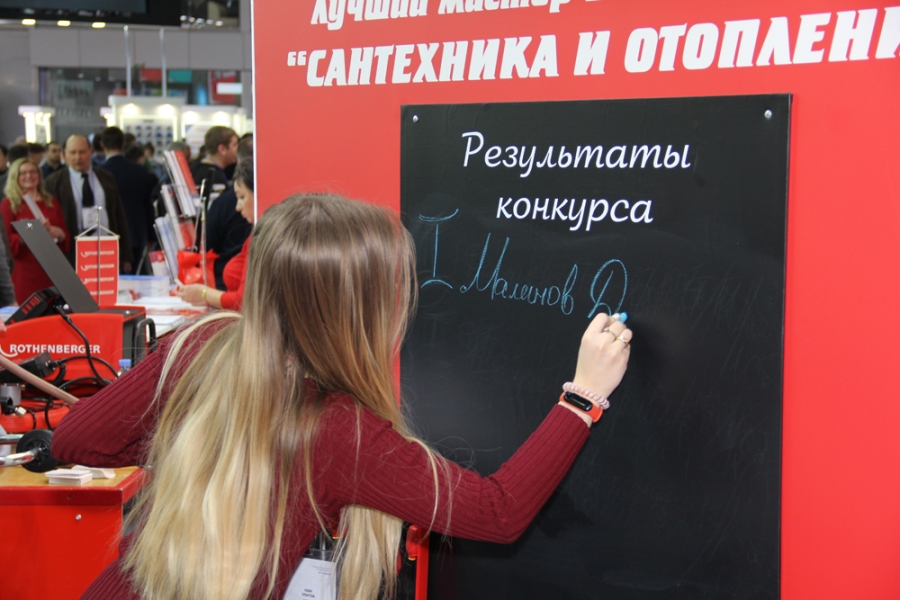 лучший мастер
"САНТЕХНИКА И ОТОПЛЕНИ
Результаты
конкурса
I Малинов Д
ROTHENBERGER